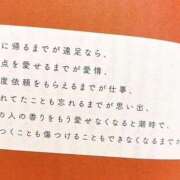 に帰るまでが遠足なら、
点を愛せるまでが愛情、
度依頼をもらえるまでが仕事、
れてたことも忘れるまでが思い出、
の人の香りをもう愛せなくなると潮時で、
つくことも傷つけることもできなくなるまでが